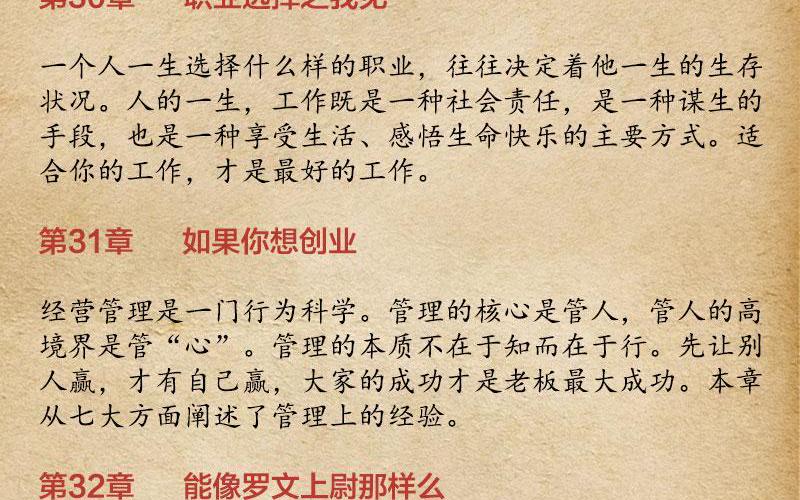 第30章 职业选择之我见
一个人一生选择什么样的职业，往往决定着他一生的生存
状况。人的一生，工作既是一种社会责任，是一种谋生的
手段，也是一种享受生活、感悟生命快乐的主要方式。适
合你的工作，才是最好的工作。
第31章 如果你想创业
经营管理是一门行为科学。管理的核心是管人，管人的高
境界是管“心”。管理的本质不在于知而在于行。先让别
人赢，才有自己赢，大家的成功才是老板最大成功。本章
从七大方面阐述了管理上的经验。
第32章 能像罗文上尉那样么